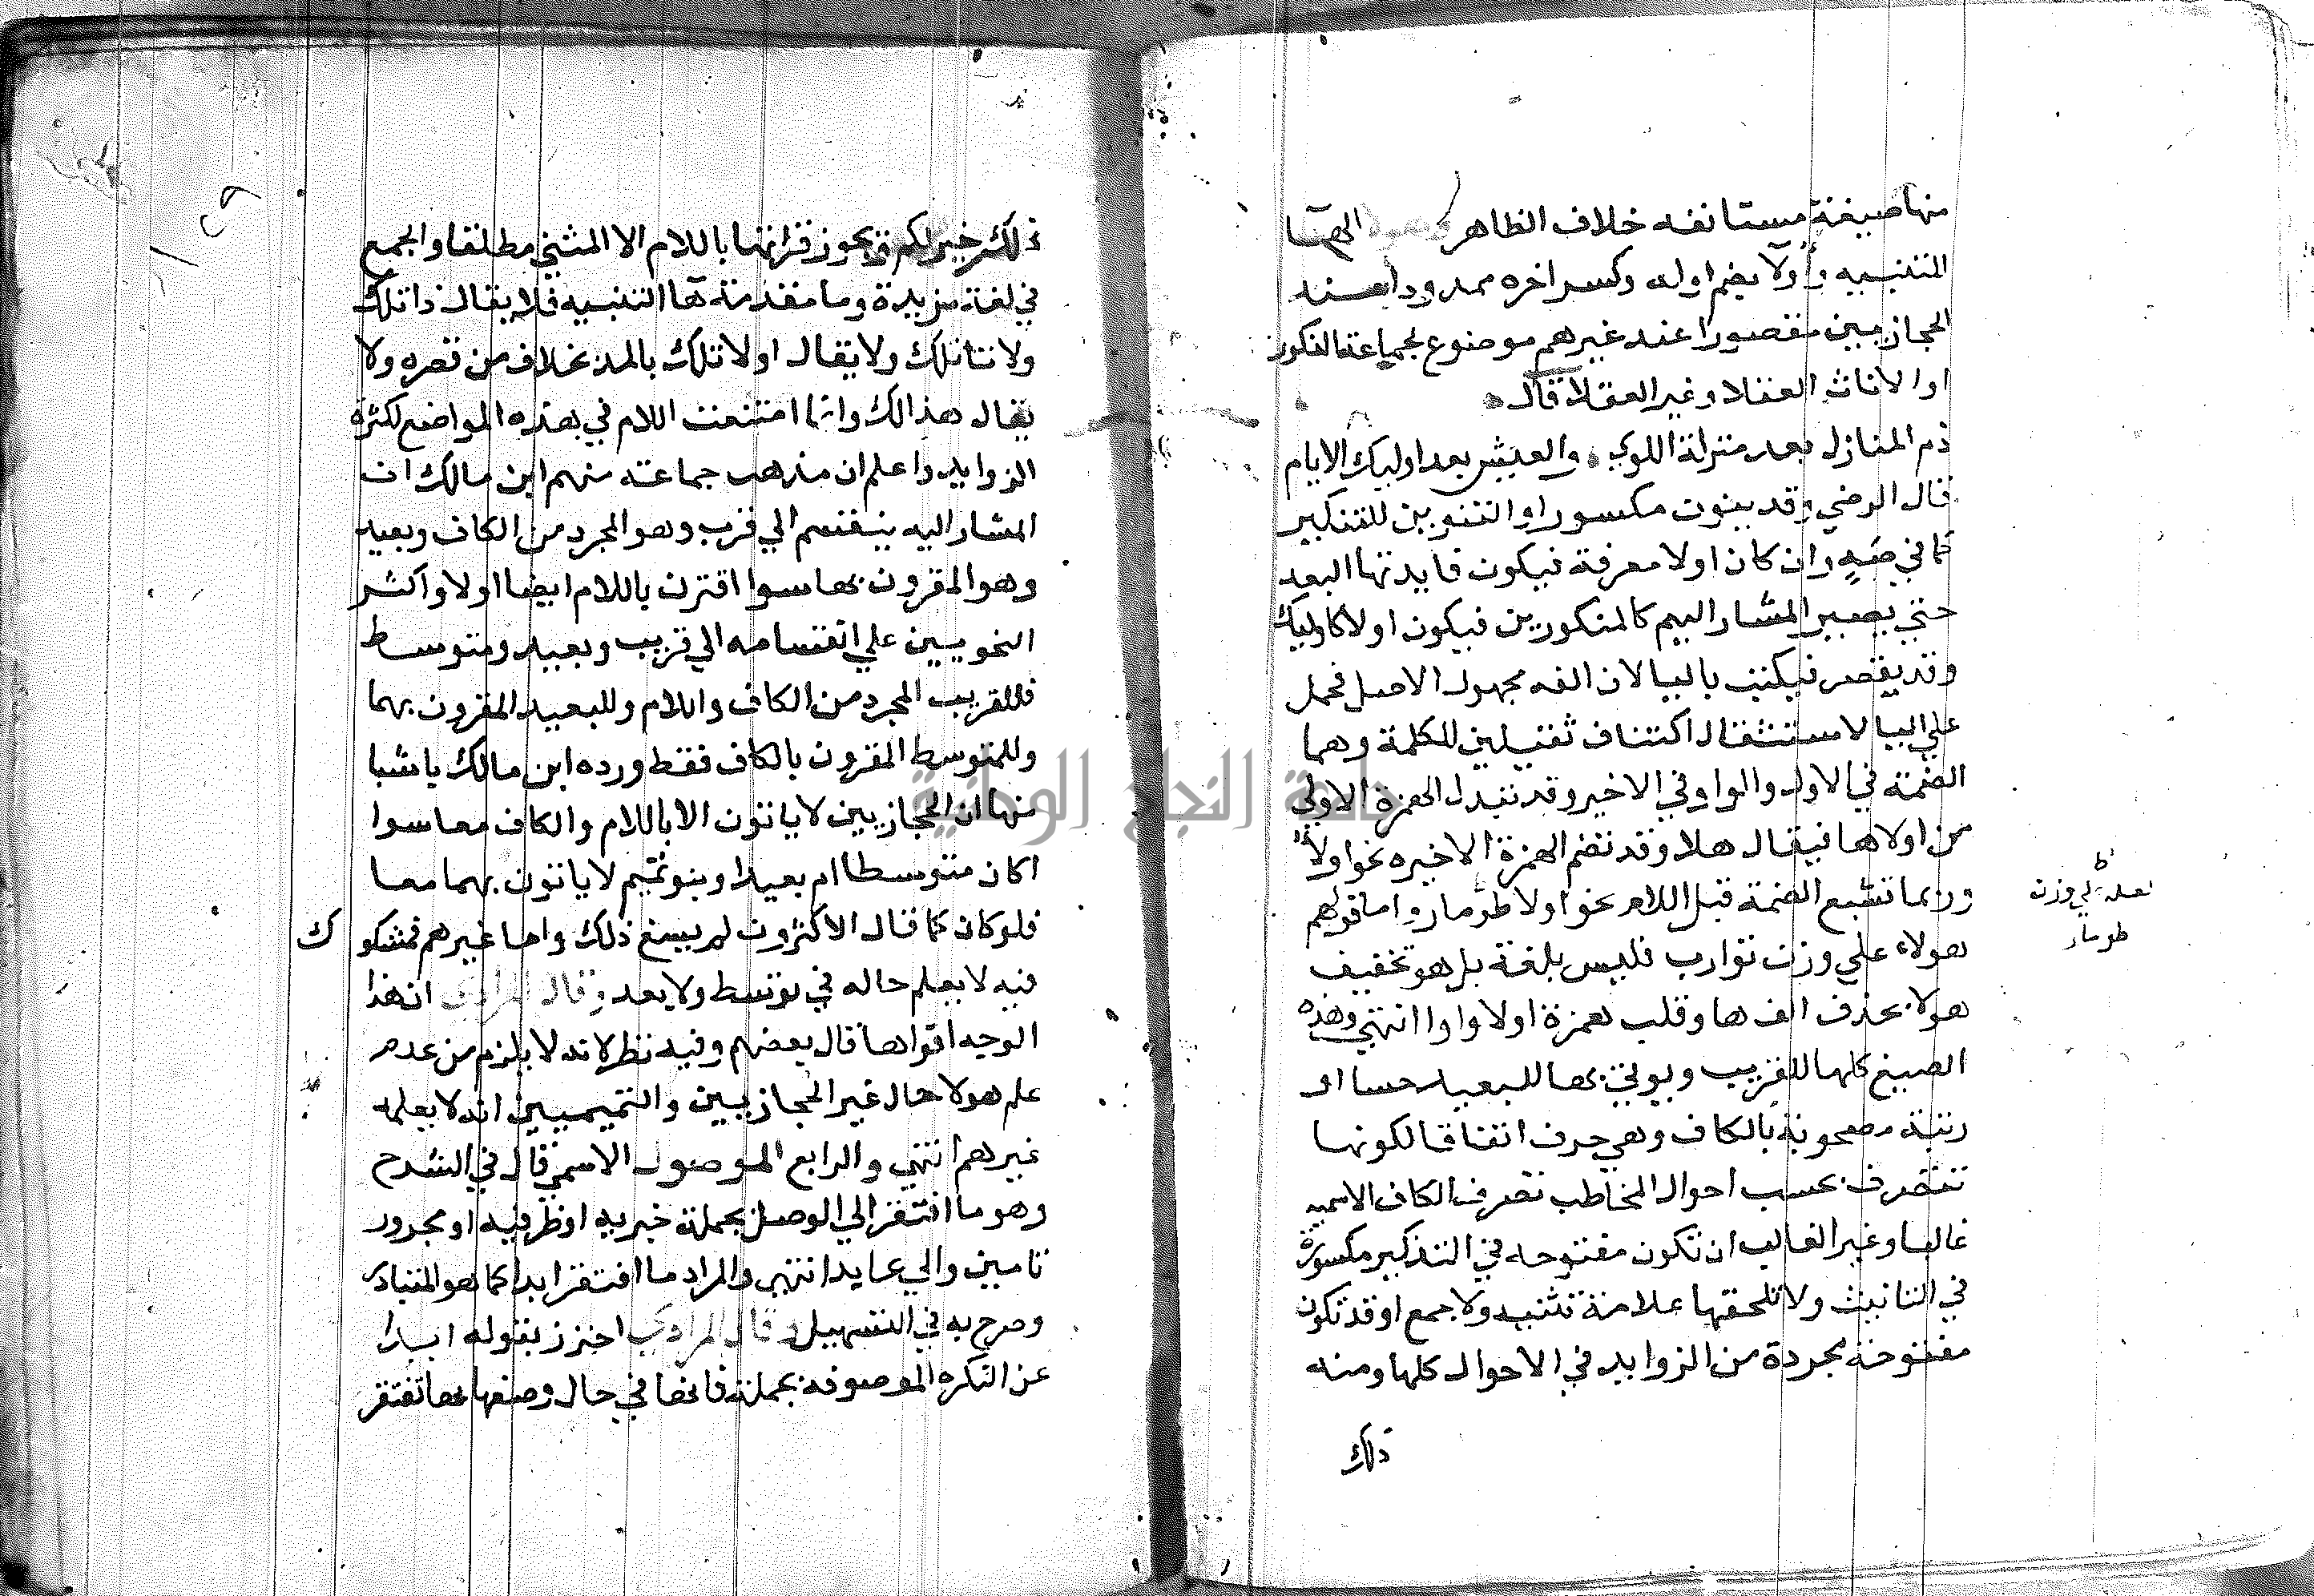 منها صيغة مستانفه خلاف الظاهر الهآ
التنبيه وأولآ بضم اوله وكسر اخره ممدودا عند
الحجازيين مقصورا عند غيرهم موضوع لجماعة الذكور
او الاناث العقلا وغير العقلا قال
ذم المنازل بعد منزلة اللوي والعيش بعد اوليك الايام
قال الرضي وقد ينون مكسورا والتنوين للتنكير
كما في صهٍ وان كان اولا معرفة فيكون فايدتها البعد
حتي يصير المشار اليهم كالمنكورين فيكون اولا كاوليك
وقد يقصر فيكتب باليا لان الفه مجهول الاصل فحمل
علي اليا لاستثقال اكتناف ثقيلين للكلمة وهما
الضمة في الاول والواو في الاخير وقد تبدل الهمزة الاولي
من اولا ها فيقال هلا وقد تضم الهمزة الاخيره نحو اولاُ
وربما تشبع الضمة قبل اللام نحو اولا طومار واما قولهم
هولاء علي وزن توارب فليس بلغة بل هو تخفيف
هولا بحذف الف ها وقلب همزة اولا واوا انتهي وهذه
الصيغ كلها للقريب ويوتي بها للبعيد حسا او
رتبة مصحوبة بالكاف وهي حرف اتفاقا لكونها
تتصرف بحسب احوال المخاطب تصرف الكاف الاسميه
غالبا وغير الغالب ان تكون مفتوحه في التذكير مكسورة
في التانيث ولا تلحقها علامة تثنيه ولا جمع او قد تكون
مفتوحة مجردة من الزوايد في الاحوال كلها ومنه
ذلك
ظ
لعله علي وزن
طومار
ذلك خير لكم ويجوز قرانتها باللام الا المثني مطلقا والجمع
في لغة من يمده وما تقدمته ها التنبيه فلا يقال ذانلك
ولا تانلك ولا يقال اولاتلك بالمد بخلاف من قصره ولا
يقال هذالك وانما امتنعت اللام في هذه المواضع لكثرة
الزوايد واعلم ان مذهب جماعته منهم ابن مالك ان
المشار اليه ينقسم الي قرب وهو المجرد من الكاف وبعيد
وهو المقرون بها سوا اقترن باللام ايضا اولا واكثر
النحويين علي انقسامه الي قريب وبعيد ومتوسط
فللقريب المجرد من الكاف واللام وللبعيد المقرون بهما
وللمتوسط المقرون بالكاف فقط ورده ابن مالك باشيا
منها ان الحجازيين لا ياتون الا باللام والكاف معا سوا
اكان متوسطا ام بعيدا وبنو تميم لا ياتون بهما معا
فلو كان كما قال الاكثرون لم يسغ ذلك واما غيرهم فمشكو ك
فيه لا يعلم حاله في توسط ولا بعد وقال المرادي ان هذا
الوجيه اقواها قال بعضهم وفيه نظر لانه لا يلزم من عدم
علم هولا حال غير الحجازيين والتميميين انه لا يعلمه
غيرهم انتهي والرابع الموصول الاسمي قال في الشرح
وهو ما افتقر الي الوصل بجملة خبريه او ظرفيه او مجرور
تامين والي عايد انتهي والمراد ما افتقر ابدا كما هو المتبادر
وصرح به في التسهيل وقال المرادي احترز بقوله ابدا
عن النكره الموصوفه بجملة فانها في حال وصفها بها تفتقر
١٢٩
جامعة النجاح الوطنية